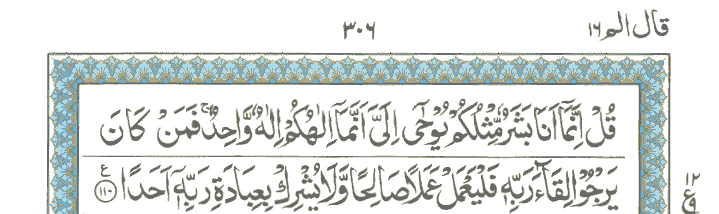 قال الم ١٦ ٣٠٦
قُلْ اِنَّمَآ اَنَا بَشَرٌ مِّثْلُكُمْ يُوْحٰٓى اِلَىَّ اَنَّمَآ اِلٰهُكُمْ اِلٰهٌ وَّاحِدٌ ۚ فَمَنْ كَانَ
يَرْجُوْا لِقَآءَ رَبِّهٖ فَلْيَعْمَلْ عَمَلًا صَالِحًا وَّلَا يُشْرِكْ بِعِبَادَةِ رَبِّهٖٓ اَحَدًا ع ١١٠
١٢
ع